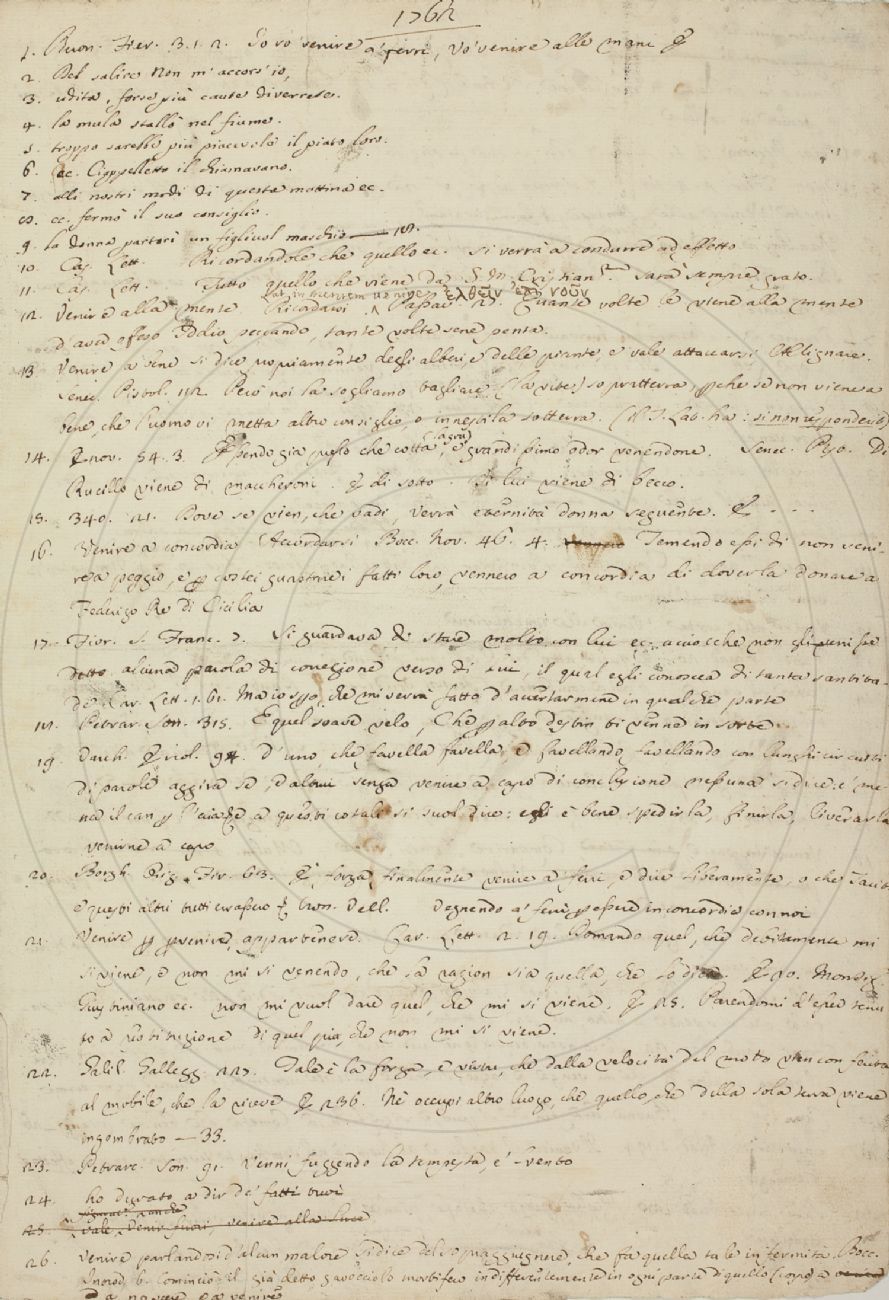 1762
1. Buon. Fier. 3. 1. 2. Io vo' venire a' ferri, vo' venire alle mani
2. Del salire non m'accors'io,
3. udita, forse più caute diverrete.
4. la mula stallò nel fiume.
5. troppo sarebbe più piacevole il piato loro.
6. ec. Ciappelletto il chiamavano.
7. alli nostri modi di questa mattina ec.
8. ec. fermò il suo consiglio.
9. la donna partorì un figliuol maschio
10. Cas. Lett. Ricordandole che quello ec. si verrà a condurre ad effetto
11. Cas. Lett. Tutto quello che viene da S. M. Cristian. sarà sempre grato.
in mentem venire ἐλθεῖν ἐπὶ νοῦν
12. Venire alla mente Ricordarsi Passav. Quante volte le viene alla mente
d'aver offeso Iddio peccando, tante volte sene penta.
13. Venire a bene si dice propriamente degli alberi, e delle piante e vale attaccarsi, Allignare.
Senec. Pistol. 112. Però noi la sogliamo tagliare (la vite) so pratterra, perche se non viene a
bene, che l'uomo vi metta altro consiglio, e innestila sotterra. (Il T. Lat. ha: si non responderit)
14. nov. 54. 3. Essendo già presso che cotta (la gru), e grandissimo odor venendone. Senec. Di
Rucillo viene di maccheroni. di sotto. Di lui viene di becco.
15. 340. 21. Dove se vien, che vadi, verrà eternità donna seguente.
16. Venire a concordia Accordarsi Bocc. Nov. 46. 4. Temendo essi di non veni-
re a peggio, e per costei guastare i fatti loro, vennero a concordia di doverla donare a
Federigo Re di Cicilia
17. Fior. S. Franc. 7. Si guardava di stare molto con lui ec. acciocche non gli venisse
detto alcuna parola di correzione verso di lui, il qual egli conoscea di tanta santita-
de Car. Lett. 1. 61. Ma io spero, che mi verrà fatto d'accertarmene in qualche parte
18. Petrar. Son. 315. E quel soave velo, Che per alto destin ti venne in sorte.
19. Varch. Ercol. 94. D'uno, che favella favella, e favellando favellando con lunghi circuiti
di parole aggira se, e altrui senza venire a capo di conclusione nessuna si dice: e' me-
na il can per l'aia: e a questi cotali si suol dire: egli è bene spedirla, finirla, liverarla
venirne a capo
20. Borgh. Orig. Fir. 63. È forza finalmente venire a' ferri, e dire liberamente, o che Tacito
e questi altri tutti errassero Cron. Vell. Vegnendo a' ferri per essere in concordia con noi
21. Venire per pervenire, appartenere. Car. Lett. 2. 19. Domando quel, che debitamente mi
si viene, e non mi si venendo, che la ragion sia quella, che lo dica. 90. Monsig.
Giustiniano ec. non mi vuol dare quel, che mi si viene. 125. Parendomi d'esser tenu
to a restituzione di quel più, che non mi si viene.
22. Galil. Gallegg. 227. Tale è la forza, e virtù, che dalla velocità del moto vien conferita
al mobile, che la riceve 236. Nè occupi altro luogo, che quello, che della sola terra viene
ingombrato — 33.
23. Petrarc. Son. 91. Venni fuggendo la tempesta, e 'l vento
24. ho durato a dir de' fatti tuoi
25. vale, Venir fuori, venire alla luce
26. Venire parlandosi d'alcun malore si dice del sopraggiugnere, che fa quella tale infermità Bocc.
Introd. 6. Cominciò il già detto gavocciolo mortifero indifferentemente in ogni parte di quello (corpo) a
a nascere e a venire